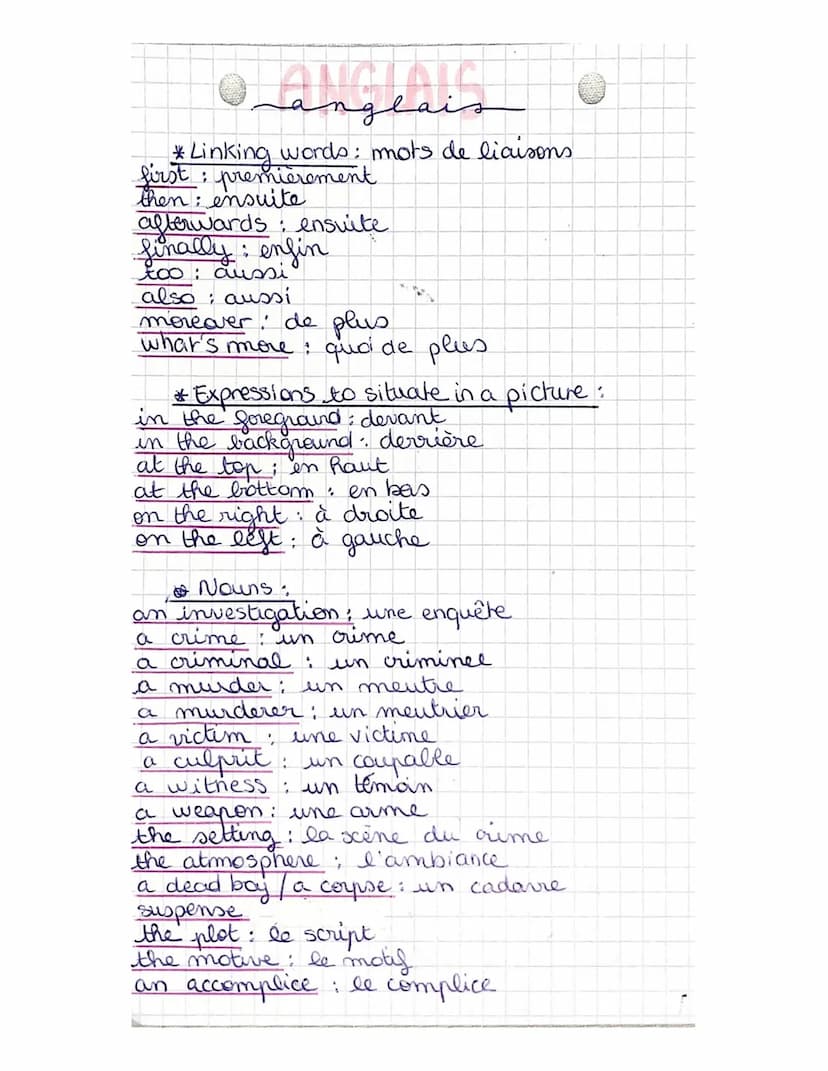 ANGLAIS
anglais
* Linking words : mots de liaisons
first : premièrement
then : ensuite
afterwards : ensuite
finally : enfin
too : aussi
also : aussi
moreover : de plus
what's more : quoi de plus
* Expressions to situate in a picture :
in the foreground : devant
in the background : derrière
at the top : en haut
at the bottom : en bas
on the right : à droite
on the left : à gauche
* Nouns :
an investigation : une enquête
a crime : un crime
a criminal : un criminel
a murder : un meutre
a murderer : un meutrier
a victim : une victime
a culprit : un coupable
a witness : un témoin
a weapon : une arme
the setting : la scène du crime
the atmosphere : l'ambiance
a dead boy / a corpse : un cadavre
suspense
the plot : le script
the motive : le motif
an accomplice : le complice